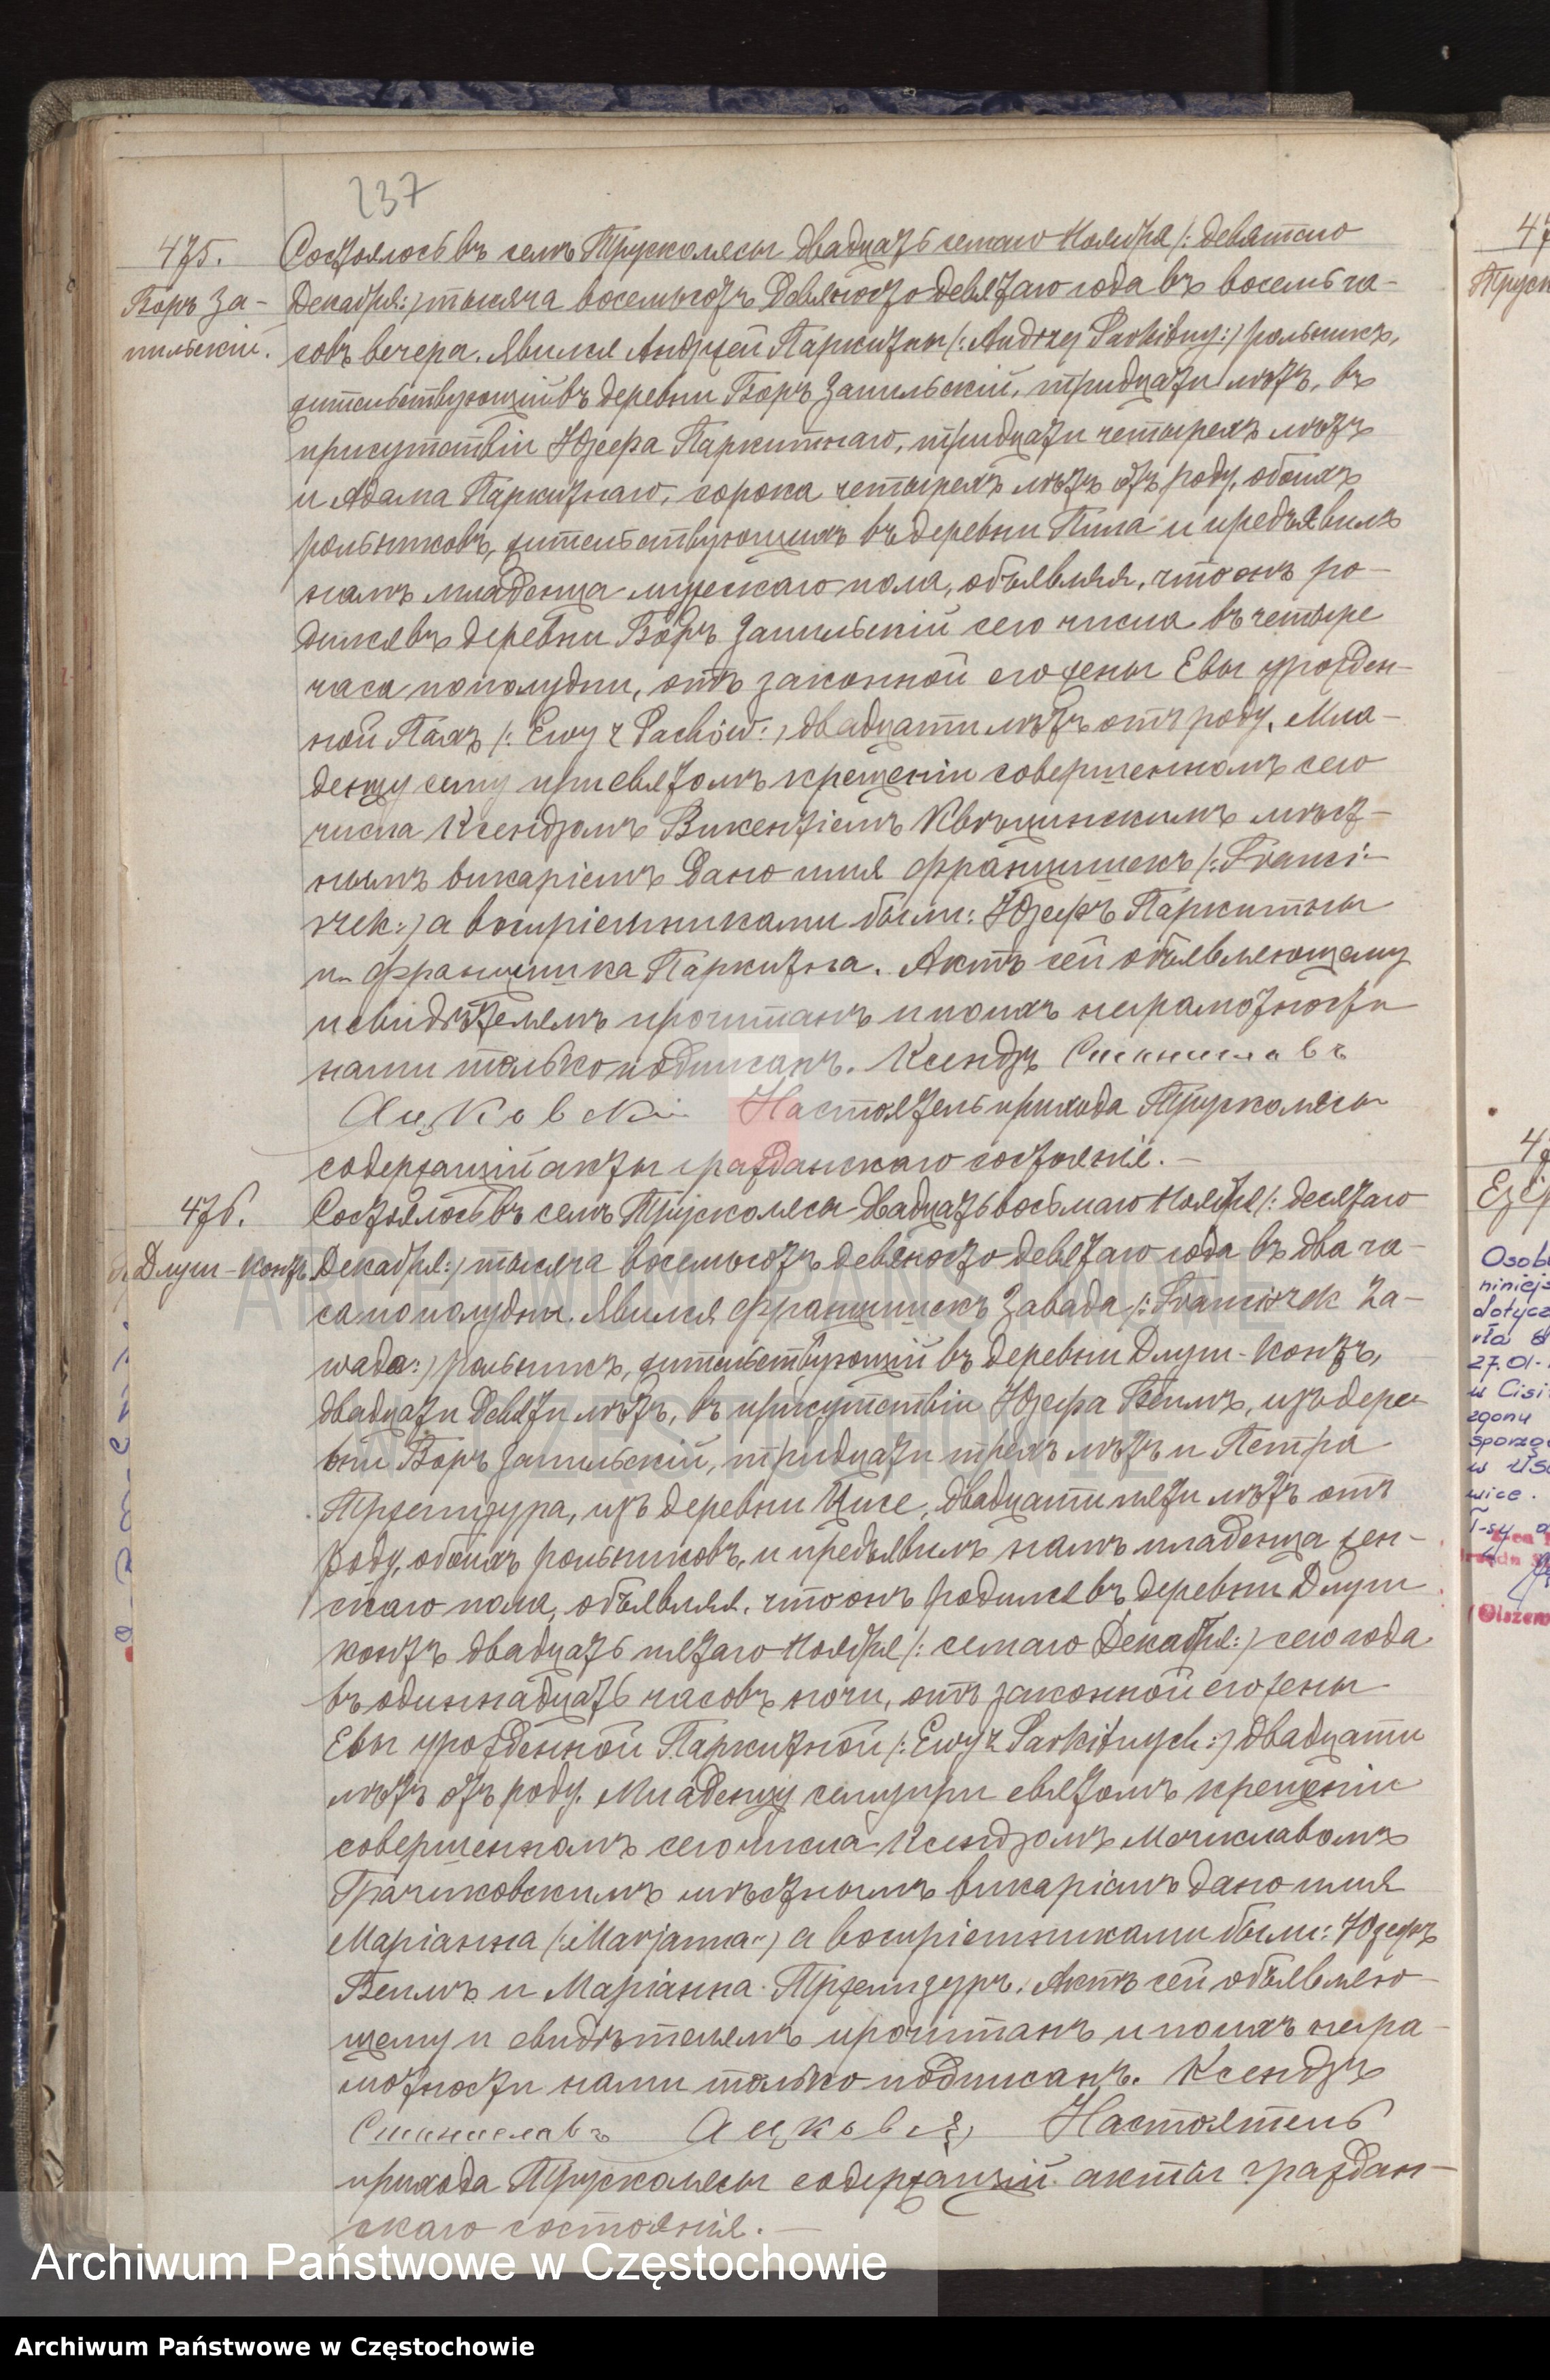 237
475.
Боръ За-
пильскій.
Состоялось въ селѣ Трусколясы двадцать седьмаго Ноября /: девятаго
Декабря :/ тысяча восемьсотъ девяносто девятаго года въ восемь ча-
совъ вечера. Явился Андржей Паркитны /: Andrzej Parkitny :/ рольникъ,
жительствующій въ деревни Боръ Запильскій, тридцати лѣтъ, въ
присутствіи Юзефа Паркитнаго, тридцати четырехъ лѣтъ
и Адама Паркитнаго, сорока четырехъ лѣтъ отъ роду, обоихъ
рольниковъ, жительствующихъ въ деревни Пила и предъявилъ
намъ младенца мужескаго пола, объявляя, что онъ ро-
дился въ деревни Боръ Запильскій сего числа въ четыре
часа пополудни, отъ законной его жены Евы урожден-
ной Пахъ /: Ewy z Pachów :/ двадцати лѣтъ отъ роду. Мла-
денцу сему при святомъ крещеніи совершенномъ сего
числа Ксендзомъ Викентіемъ мѣст-
нымъ викаріемъ дано имя Францишекъ /: Franci-
szek :/ а воспріемниками были: Юзефъ Паркитны
и Францишка Паркитна. Актъ сей объявляющему
и свидѣтелямъ прочитанъ и по ихъ неграмотности
нами только подписанъ. Ксендзъ Станиславъ
Настоятель прихода Трусколясы
содержащій акты гражданскаго состоянія. —
476.
Длуги-Контъ
Состоялось въ селѣ Трусколясы двадцать восьмаго Ноября /: десятаго
Декабря :/ тысяча восемьсотъ девяносто девятаго года въ два ча-
са пополудни. Явился Францишекъ Завада /: Franciszek Za-
wada :/ рольникъ, жительствующій въ деревни Длуги-Контъ,
двадцати девяти лѣтъ, въ присутствіи Юзефа из дере-
вни Боръ Запильскій, тридцати трехъ лѣтъ и Петра
изъ деревни Цисе, двадцати пяти лѣтъ отъ
роду, обоихъ рольниковъ, и предъявилъ намъ младенца жен-
скаго пола, объявляя, что онъ родился въ деревни Длуги
контъ двадцать пятаго Ноября /: седьмаго Декабря :/ сего года
въ одиннадцать часовъ ночи, отъ законной его жены
Евы урожденной Паркитной /: Ewy z Parkitnych :/ двадцати
лѣтъ отъ роду. Младенцу сему при святомъ крещеніи
совершенномъ сего числа Ксендзомъ Мечиславомъ
мѣстнымъ викаріемъ дано имя
Маріанна /: Marjanna :/ а воспріемниками были: Юзефъ
и Маріанна Актъ сей объявляю-
щему и свидѣтелямъ прочитанъ и по ихъ негра-
мотности нами только подписанъ. Ксендзъ
Станиславъ Настоятель
прихода Трусколясы содержащій акты граждан-
скаго состоянія. —
Osob
niniejs
dotycz
27.01.
w Cisi
zgonu
sporzą
ARCHIWUM PAŃSTWOWE
W CZĘSTOCHOWIE
Archiwum Państwowe w Częstochowie
Archiwum Państwowe w Częstochowie